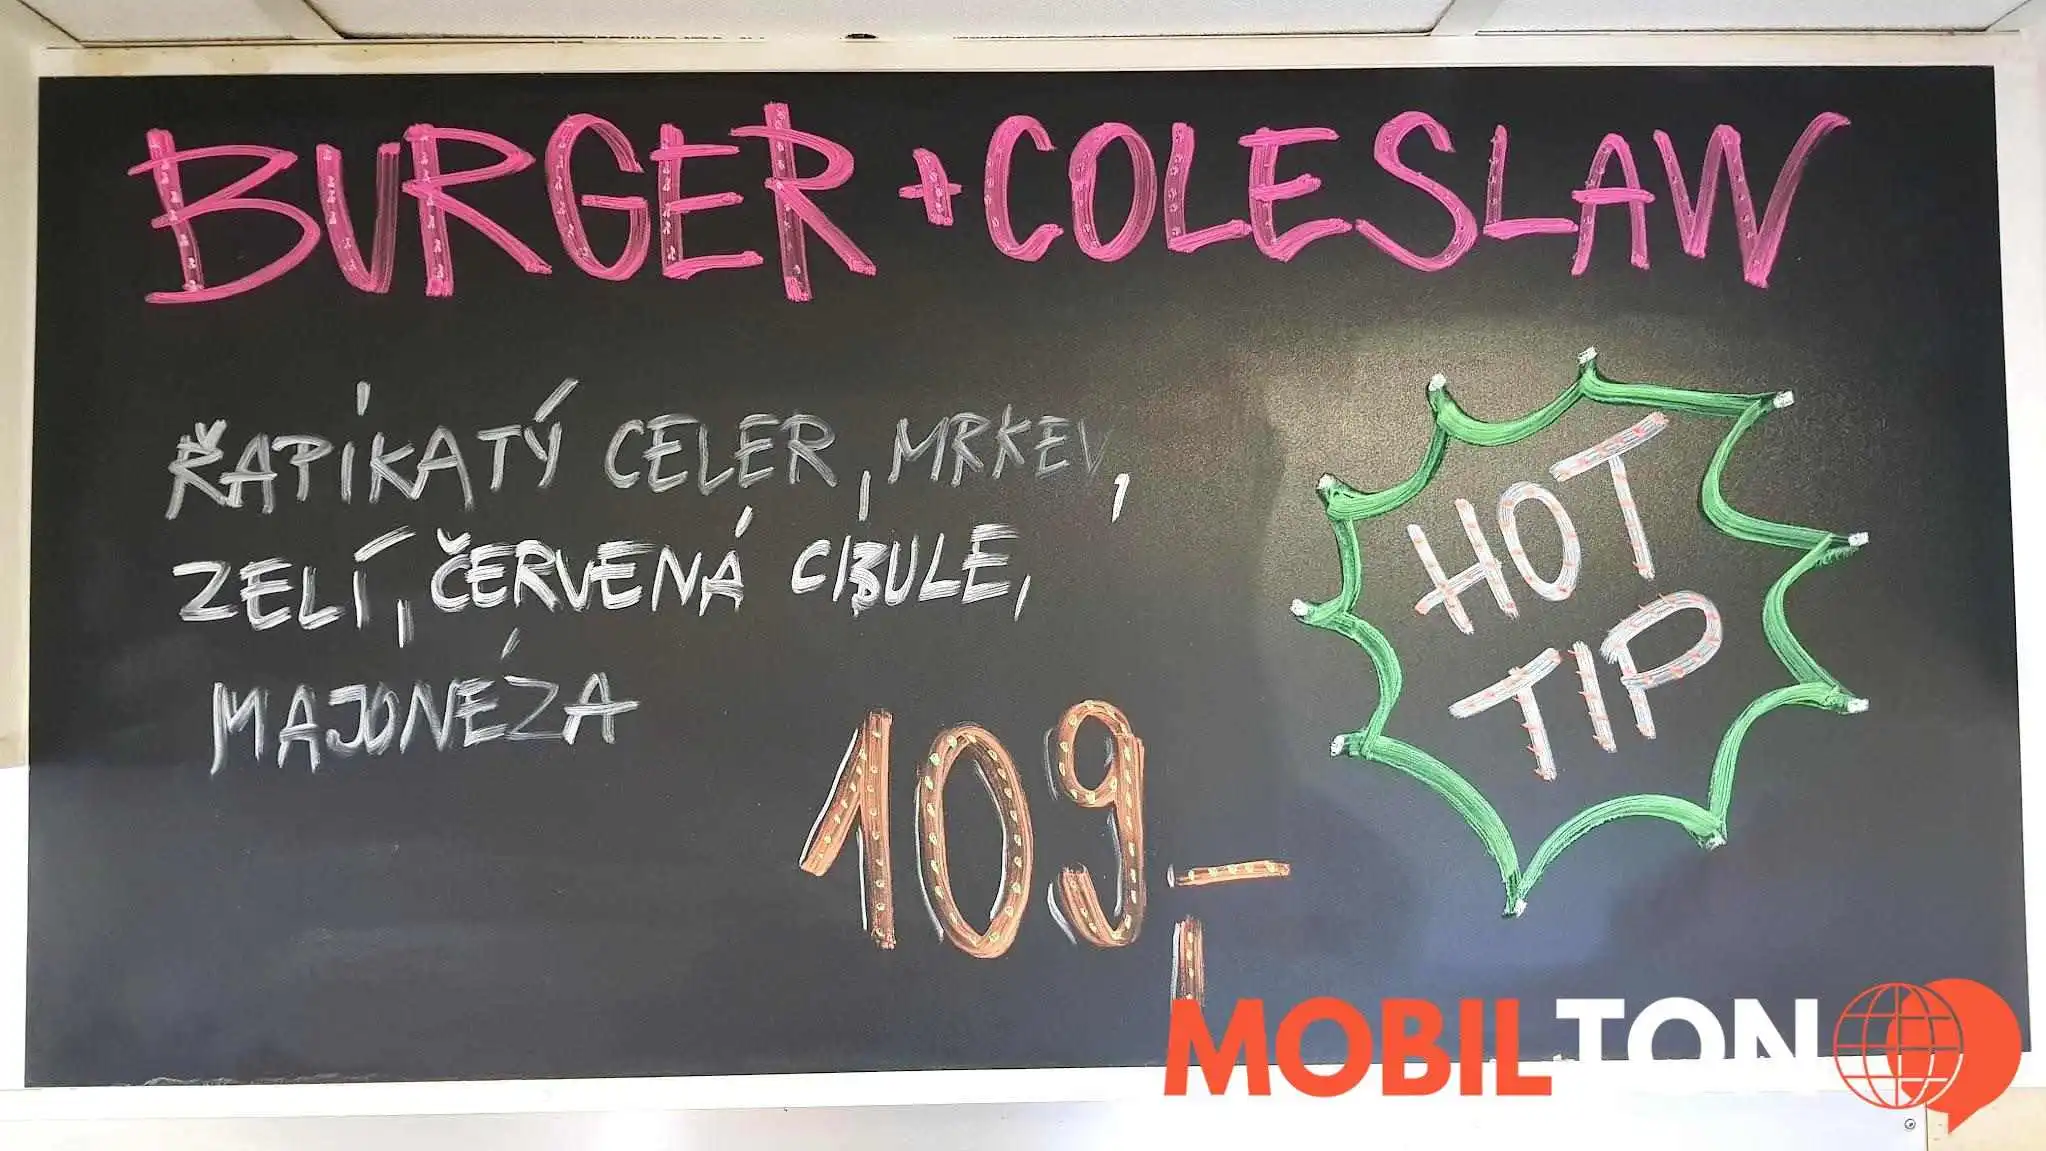 BURGER + COLESLAW
ŘAPÍKATÝ CELER, MRKEV,
ZELÍ, ČERVENÁ CIBULE,
MAJONÉZA
109,-
HOT
TIP
MOBIL TON